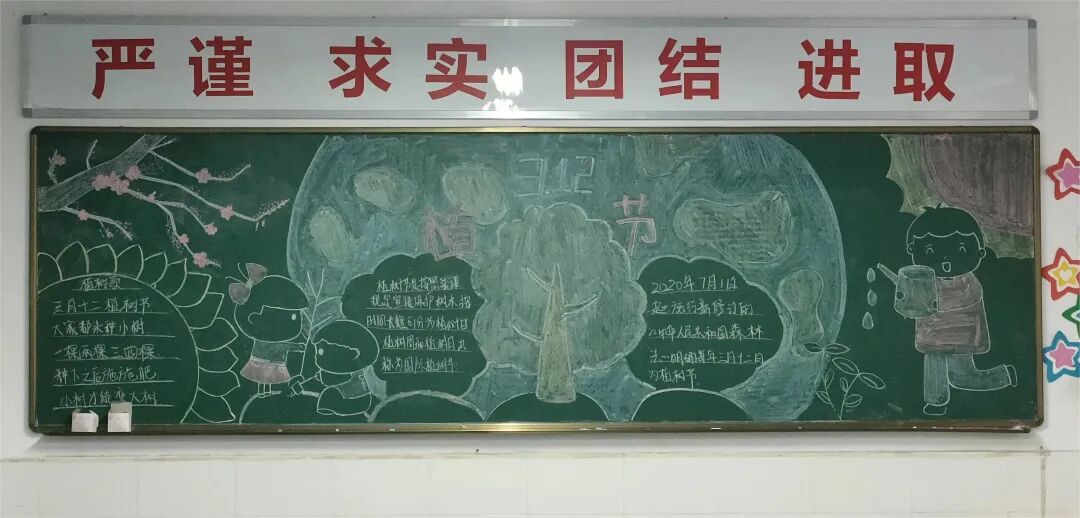 严谨 求实 团结 进取
3.12
植 节
植树歌
三月十二植树节
大家都来种小树
一棵两棵三四棵
种下之后施施肥
小树才能变大树
植树节是按照法律
规定宣传保护树木
时间长短可分为植树日
植树周和植树月
称为国际植树节
2020年7月1日
起施行新修订的
中华人民共和国森林
法明确每年三月十二日
为植树节